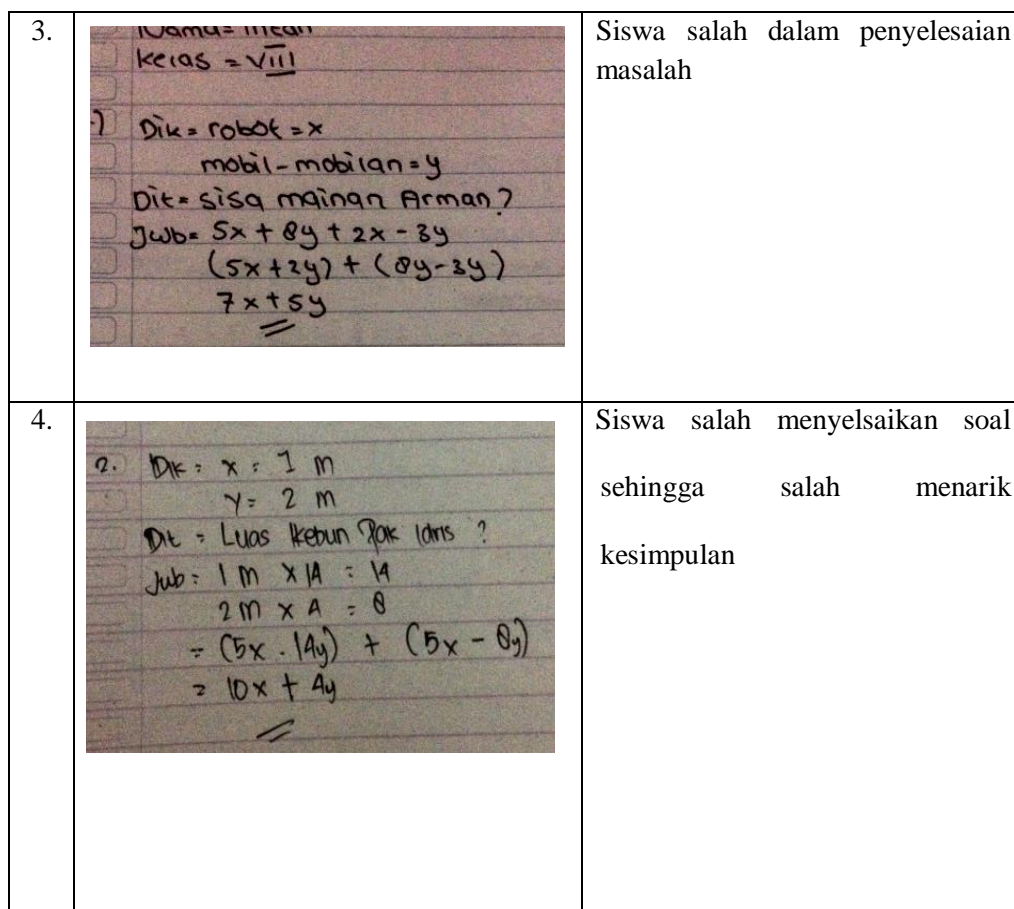 3.
kelas = VIII
Dik = robot = x
mobil-mobilan = y
Dit = sisa mainan Arman?
Jwb = 5x + 8y + 2x - 3y
(5x+2y) + (8y-3y)
7x + 5y
Siswa salah dalam penyelesaian
masalah
4.
2. Dik : x : 1 m
y = 2 m
Dit : Luas kebun Pak Idris ?
Jwb : 1 m x 14 = 14
2 m x 4 = 8
= (5x . 14y) + (5x - 8y)
= 10x + 4y
Siswa salah menyelsaikan soal
sehingga salah menarik
kesimpulan